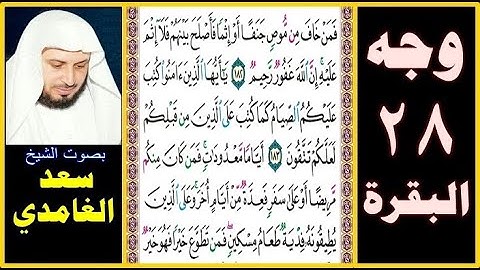 وجه
٢٨
البقرة
فَمَنْ خَافَ مِن مُّوصٍ جَنَفًا أَوْ إِثْمًا فَأَصْلَحَ بَيْنَهُمْ فَلَآ إِثْمَ
عَلَيْهِ إِنَّ ٱللَّهَ غَفُورٌ رَّحِيمٌ ١٨٢ يَٰٓأَيُّهَا ٱلَّذِينَ ءَامَنُوا۟ كُتِبَ
عَلَيْكُمُ ٱلصِّيَامُ كَمَا كُتِبَ عَلَى ٱلَّذِينَ مِن قَبْلِكُمْ
لَعَلَّكُمْ تَتَّقُونَ ١٨٣ أَيَّامًا مَّعْدُودَٰتٍ فَمَن كَانَ مِنكُم
مَّرِيضًا أَوْ عَلَىٰ سَفَرٍ فَعِدَّةٌ مِّنْ أَيَّامٍ أُخَرَ وَعَلَى ٱلَّذِينَ
يُطِيقُونَهُۥ فِدْيَةٌ طَعَامُ مِسْكِينٍ فَمَن تَطَوَّعَ خَيْرًا فَهُوَ خَيْرٌ
بصوت الشيخ
سعد
الغامدي